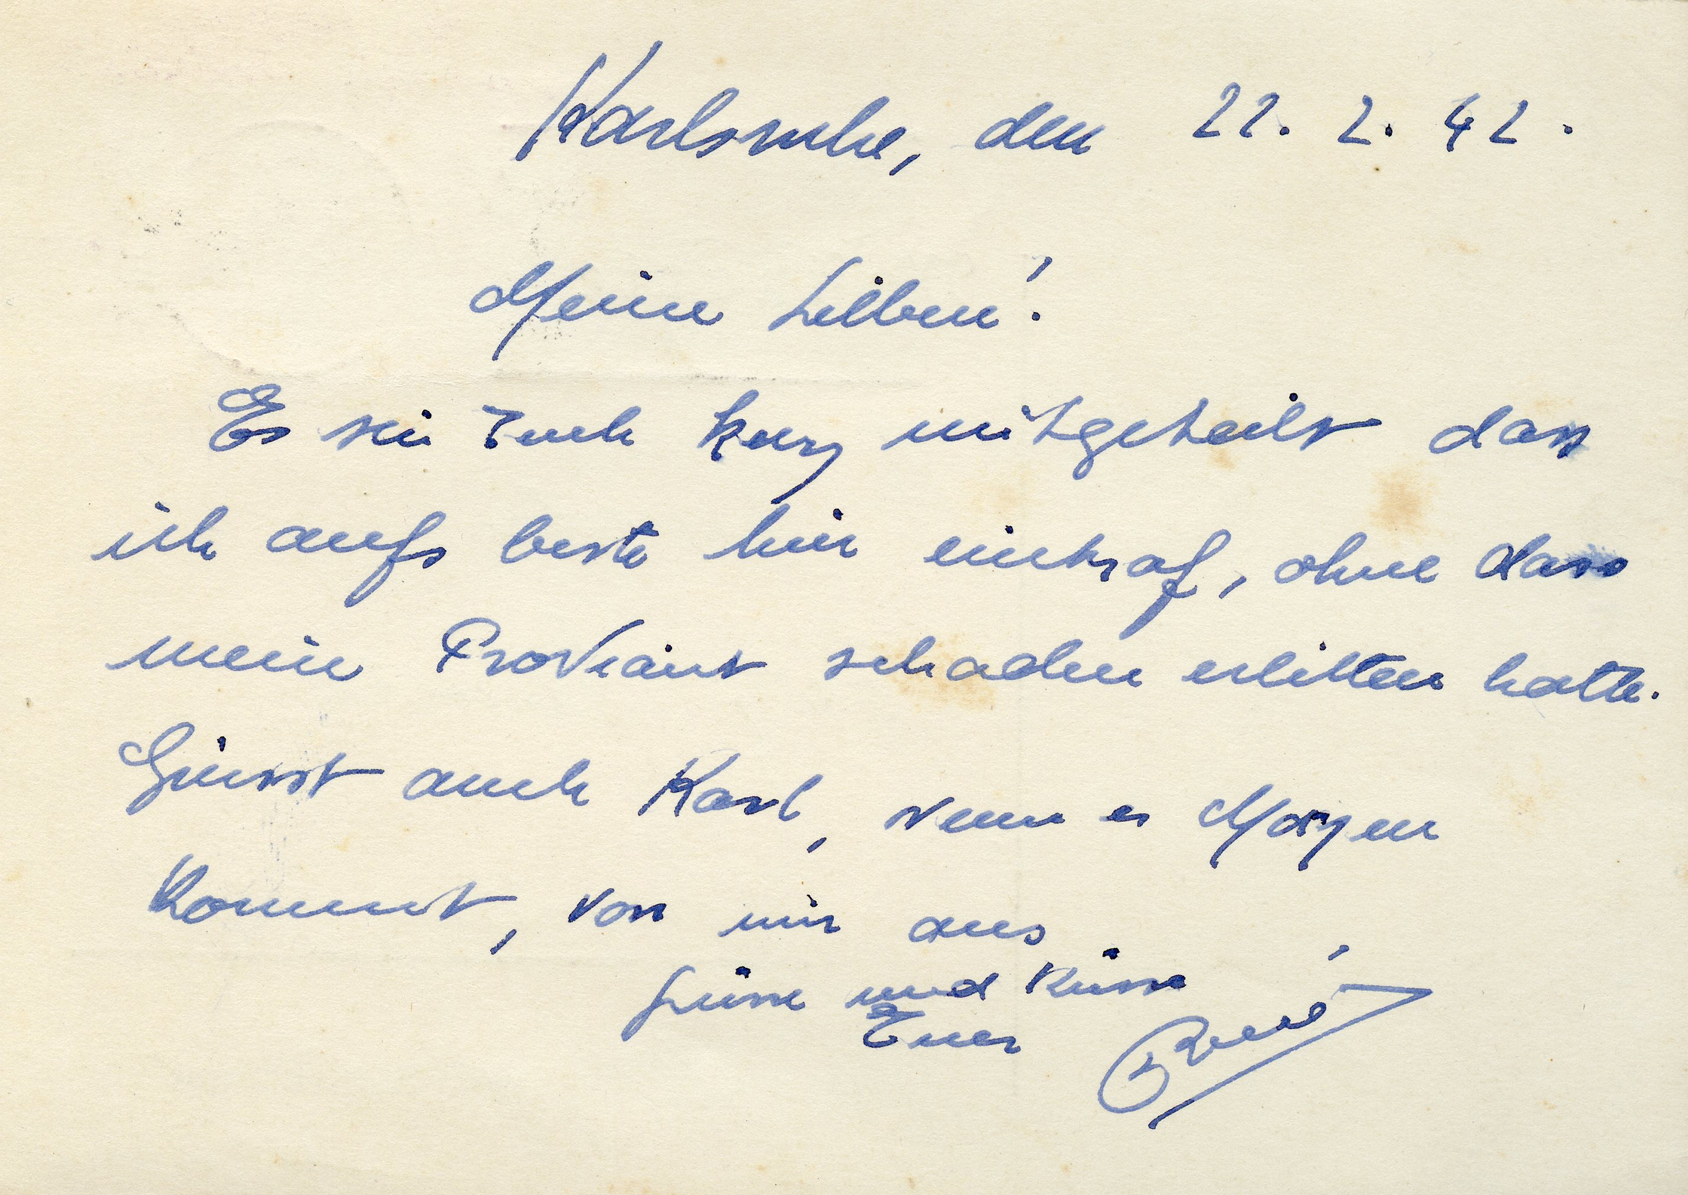 Karlsruhe, den 22. 2. 42.
Meine Lieben!
Es sei Euch kurz mitgeteilt dass
ich aufs beste hier eintraf, ohne dass
mein Proviant schaden erlitten hatte.
Grüsst auch Karl, wenn er Morgen
kommt, von mir aus
Grüsse und Küsse
Euer René